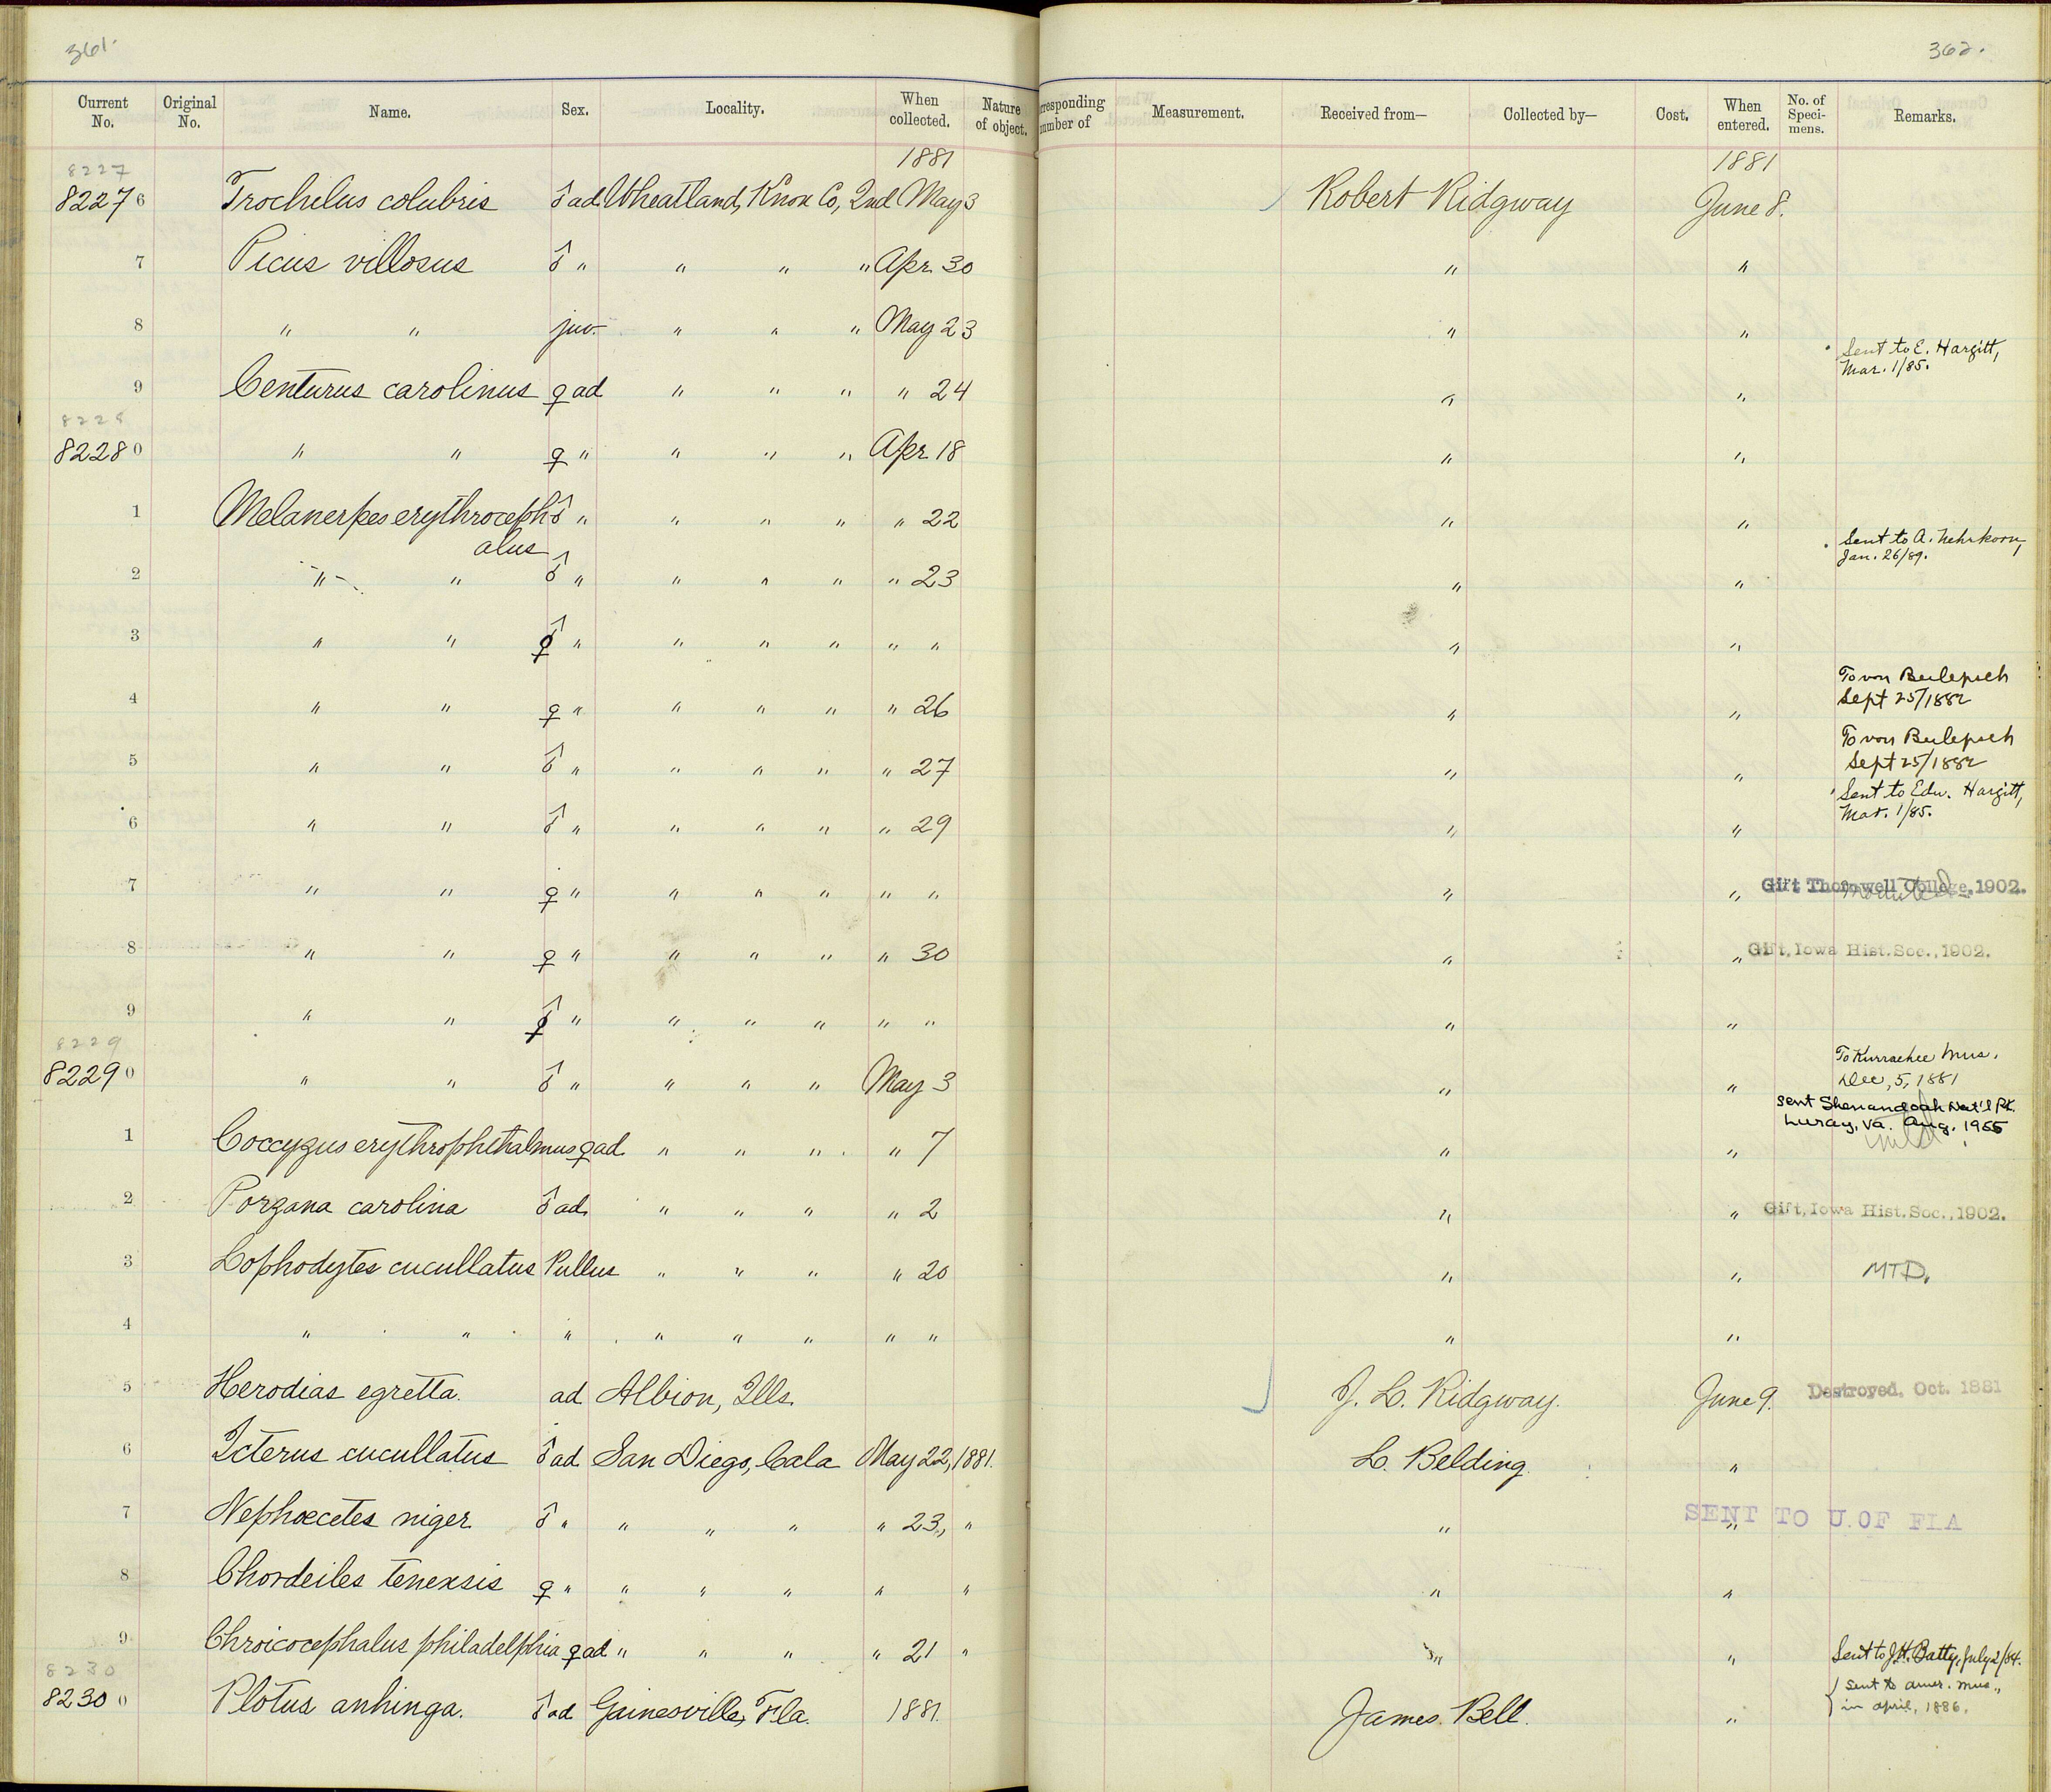 361.
362.
Current No. Original No. Name. Sex. Locality. When collected. Nature of object. rresponding umber of Measurement. Received from— Collected by— Cost. When entered. No. of Specimens. Remarks.
1881 1881
8227
82276 Trochilus colubris ♂ ad Wheatland, Knox Co, Ind May 3 Robert Ridgway June 8.
7 Picus villosus ♂ " " " " Apr. 30 " "
8 " " juv. " " " May 23 " "
Sent to E. Hargitt,
Mar. 1/85.
9 Centurus carolinus ♀ ad " " " " 24 " "
8228
82280 " " ♀ " " " " Apr. 18 " "
1 Melanerpes erythroceph ♂ " " " " " 22 " "
alus
Sent to A. Nehrkorn,
Jan. 26/89.
2 " " ♂ " " " " " 23 " "
3 " " ♀ " " " " " " " "
To von Berlepsch
Sept 25/1882
4 " " ♀ " " " " " 26 " "
To von Berlepsch
Sept 25/1882
5 " " ♂ " " " " " 27 " "
Sent to Edw. Hargitt,
Mar. 1/85.
6 " " ♂ " " " " " 29 " "
7 " " ♀ " " " " " " " " Gift Thornwell College, 1902. mounted
8 " " ♀ " " " " " 30 " " Gift, Iowa Hist. Soc., 1902.
9 " " ♀ " " " " " " " "
8229
To Kurrachee Mus.
Dec, 5, 1881
82290 " " ♂ " " " " May 3 " "
sent Shenandoah Nat'l Pk.
Luray, Va. Aug. 1955
1 Coccyzus erythrophthalmus ♀ ad. " " " " 7 " " mtd
2 Porzana carolina ♂ ad. " " " " 2 " " Gift, Iowa Hist. Soc., 1902.
3 Lophodytes cucullatus Pullus " " " " 20 " " MTD.
4 " " " " " " " " " "
5 Herodias egretta. ad Albion, Ills. J. L. Ridgway. June 9. Destroyed, Oct. 1881
6 Icterus cucullatus ♂ ad San Diego, Cala May 22, 1881. L. Belding. "
7 Nephœcetes niger ♂ " " " " " 23, " " " SENT TO U. OF FLA
8 Chordeiles texensis ♀ " " " " " " " "
9 Chroicocephalus philadelphia ♀ ad " " " " 21 " " " Sent to J.H. Batty, July 2/84.
8230
82300 Plotus anhinga. ♂ ad Gainesville, Fla. 1881. James Bell. "
Sent to Amer. Mus.,
in April, 1886.